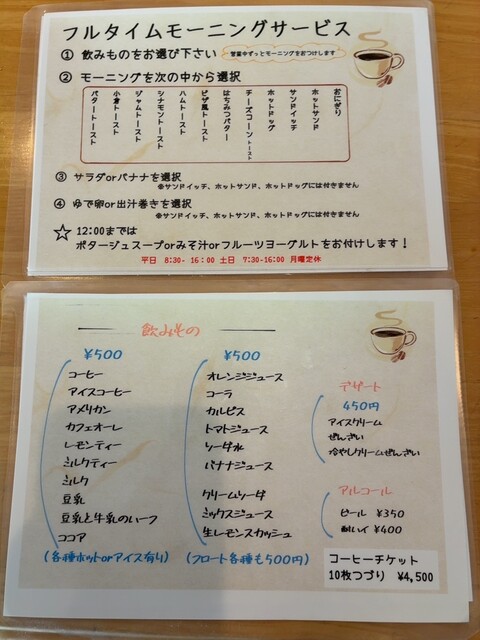 フルタイムモーニングサービス
① 飲みものをお選び下さい
営業中ずっとモーニングをおつけします
② モーニングを次の中から選択
おにぎり
ホットサンド
サンドイッチ
ホットドッグ
チーズコーントースト
はちみつバター
ピザ風トースト
ハムトースト
シナモントースト
ジャムトースト
小倉トースト
バタートースト
③ サラダorバナナを選択
※サンドイッチ、ホットサンド、ホットドッグには付きません
④ ゆで卵or出汁巻きを選択
※サンドイッチ、ホットサンド、ホットドッグには付きません
☆ 12:00までは
ポタージュスープorみそ汁orフルーツヨーグルトをお付けします！
平日 8:30-16:00 土日 7:30-16:00 月曜定休
飲みもの
¥500
コーヒー
アイスコーヒー
アメリカン
カフェオーレ
レモンティー
ミルクティー
ミルク
豆乳
豆乳と牛乳のハーフ
ココア
(各種ホットorアイス有り)
¥500
オレンジジュース
コーラ
カルピス
トマトジュース
ソーダ水
バナナジュース
クリームソーダ
ミックスジュース
生レモンスカッシュ
(フロート各種も500円)
デザート
450円
アイスクリーム
ぜんざい
冷やしクリームぜんざい
アルコール
ビール ¥350
酎ハイ ¥400
コーヒーチケット
10枚つづり ¥4,500